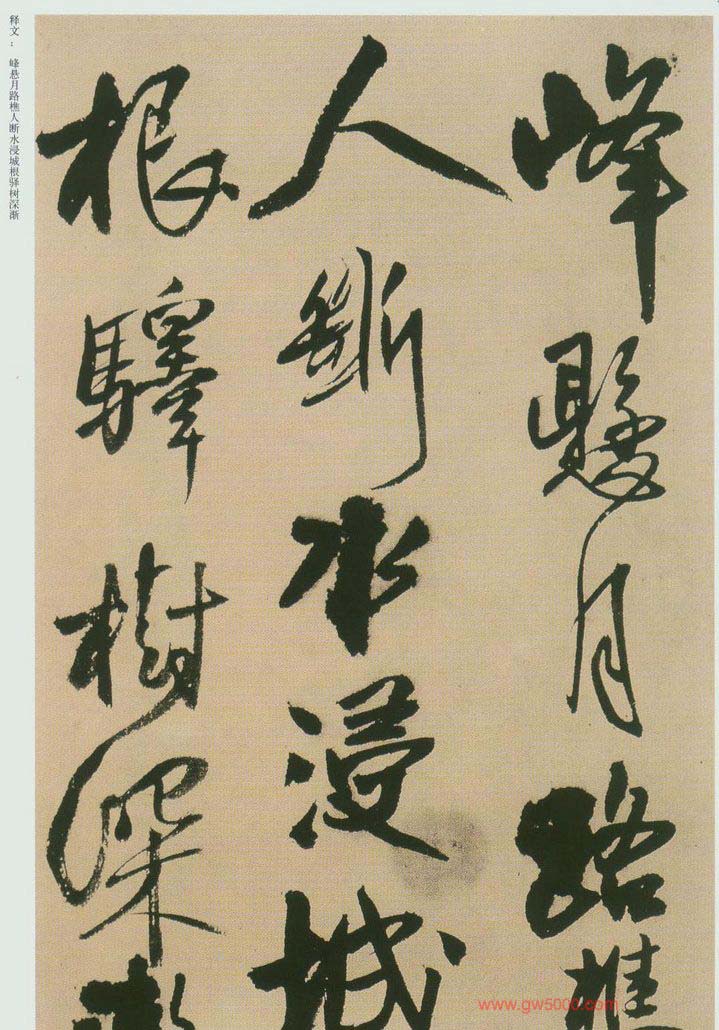 峰懸月路樵
人斷水浸城
根驛樹深漸
释文： 峰悬月路樵人断水浸城根驿树深渐
www.gw5000.com